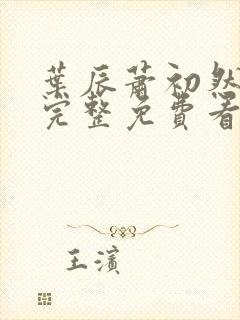 葉辰蕭初然
完整免費看
王濱